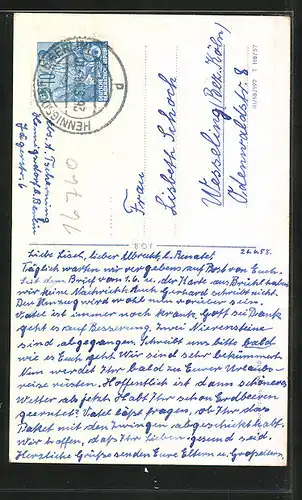 Abs. A. Tschierning
Hennigsdorf b. Berlin
Jägerstr. 6
HENNIGSDORF (KR. OSTHAVELLAND)
DEUTSCHE DEMOKRATISCHE REPUBLIK
10
p
097691
Frau
Lisbeth Schoch
Wesseling (Bez. Köln)
Odenwaldstr. 8
J.G.B.
Liebe Liesl, lieber Albrecht u. Renate! 26.6.58.
Täglich warten wir vergebens auf Post von Euch.
Seit dem Brief vom 1.6. u. der Karte aus Brühl haben
wir keine Nachricht. Auch Gerhard schreibt nicht.
Der Umzug wird wohl nun vorüber sein.
Vatel ist immer noch krank. Gott sei Dank
geht es auf Besserung. Zwei Nierensteine
sind abgegangen. Schreibt uns bitte bald
wie es Euch geht. Wir sind sehr bekümmert.
Nun werdet Ihr bald zu Eurer Urlaubs-
reise rüsten. Hoffentlich ist dann schöneres
Wetter als jetzt. Habt Ihr schon Erdbeeren
geerntet? Vatel läßt fragen, ob Ihr das
Paket mit den Zwingen abgeschickt habt.
Wir hoffen, daß Ihr Lieben gesund seid.
Herzliche Grüße senden Eure Eltern u. Großeltern.